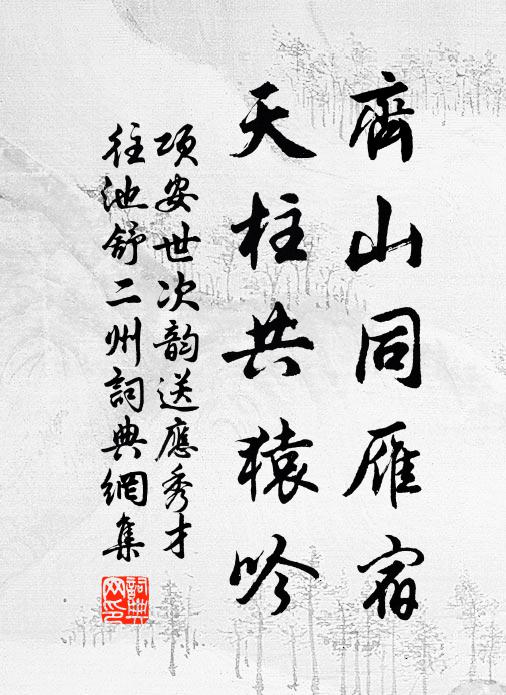 齊山同雁宿
天柱共猿吟
項安世次韵送應秀才
往池舒二州詞典網集